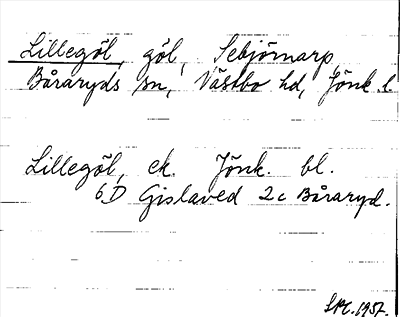 Lillegöl, göl, Sebjörnarp
Båraryds sn, Västbo hd, Jönk. l.
Lillegöl, ek. Jönk. bl.
6D Gislaved 2c Båraryd.
1957.